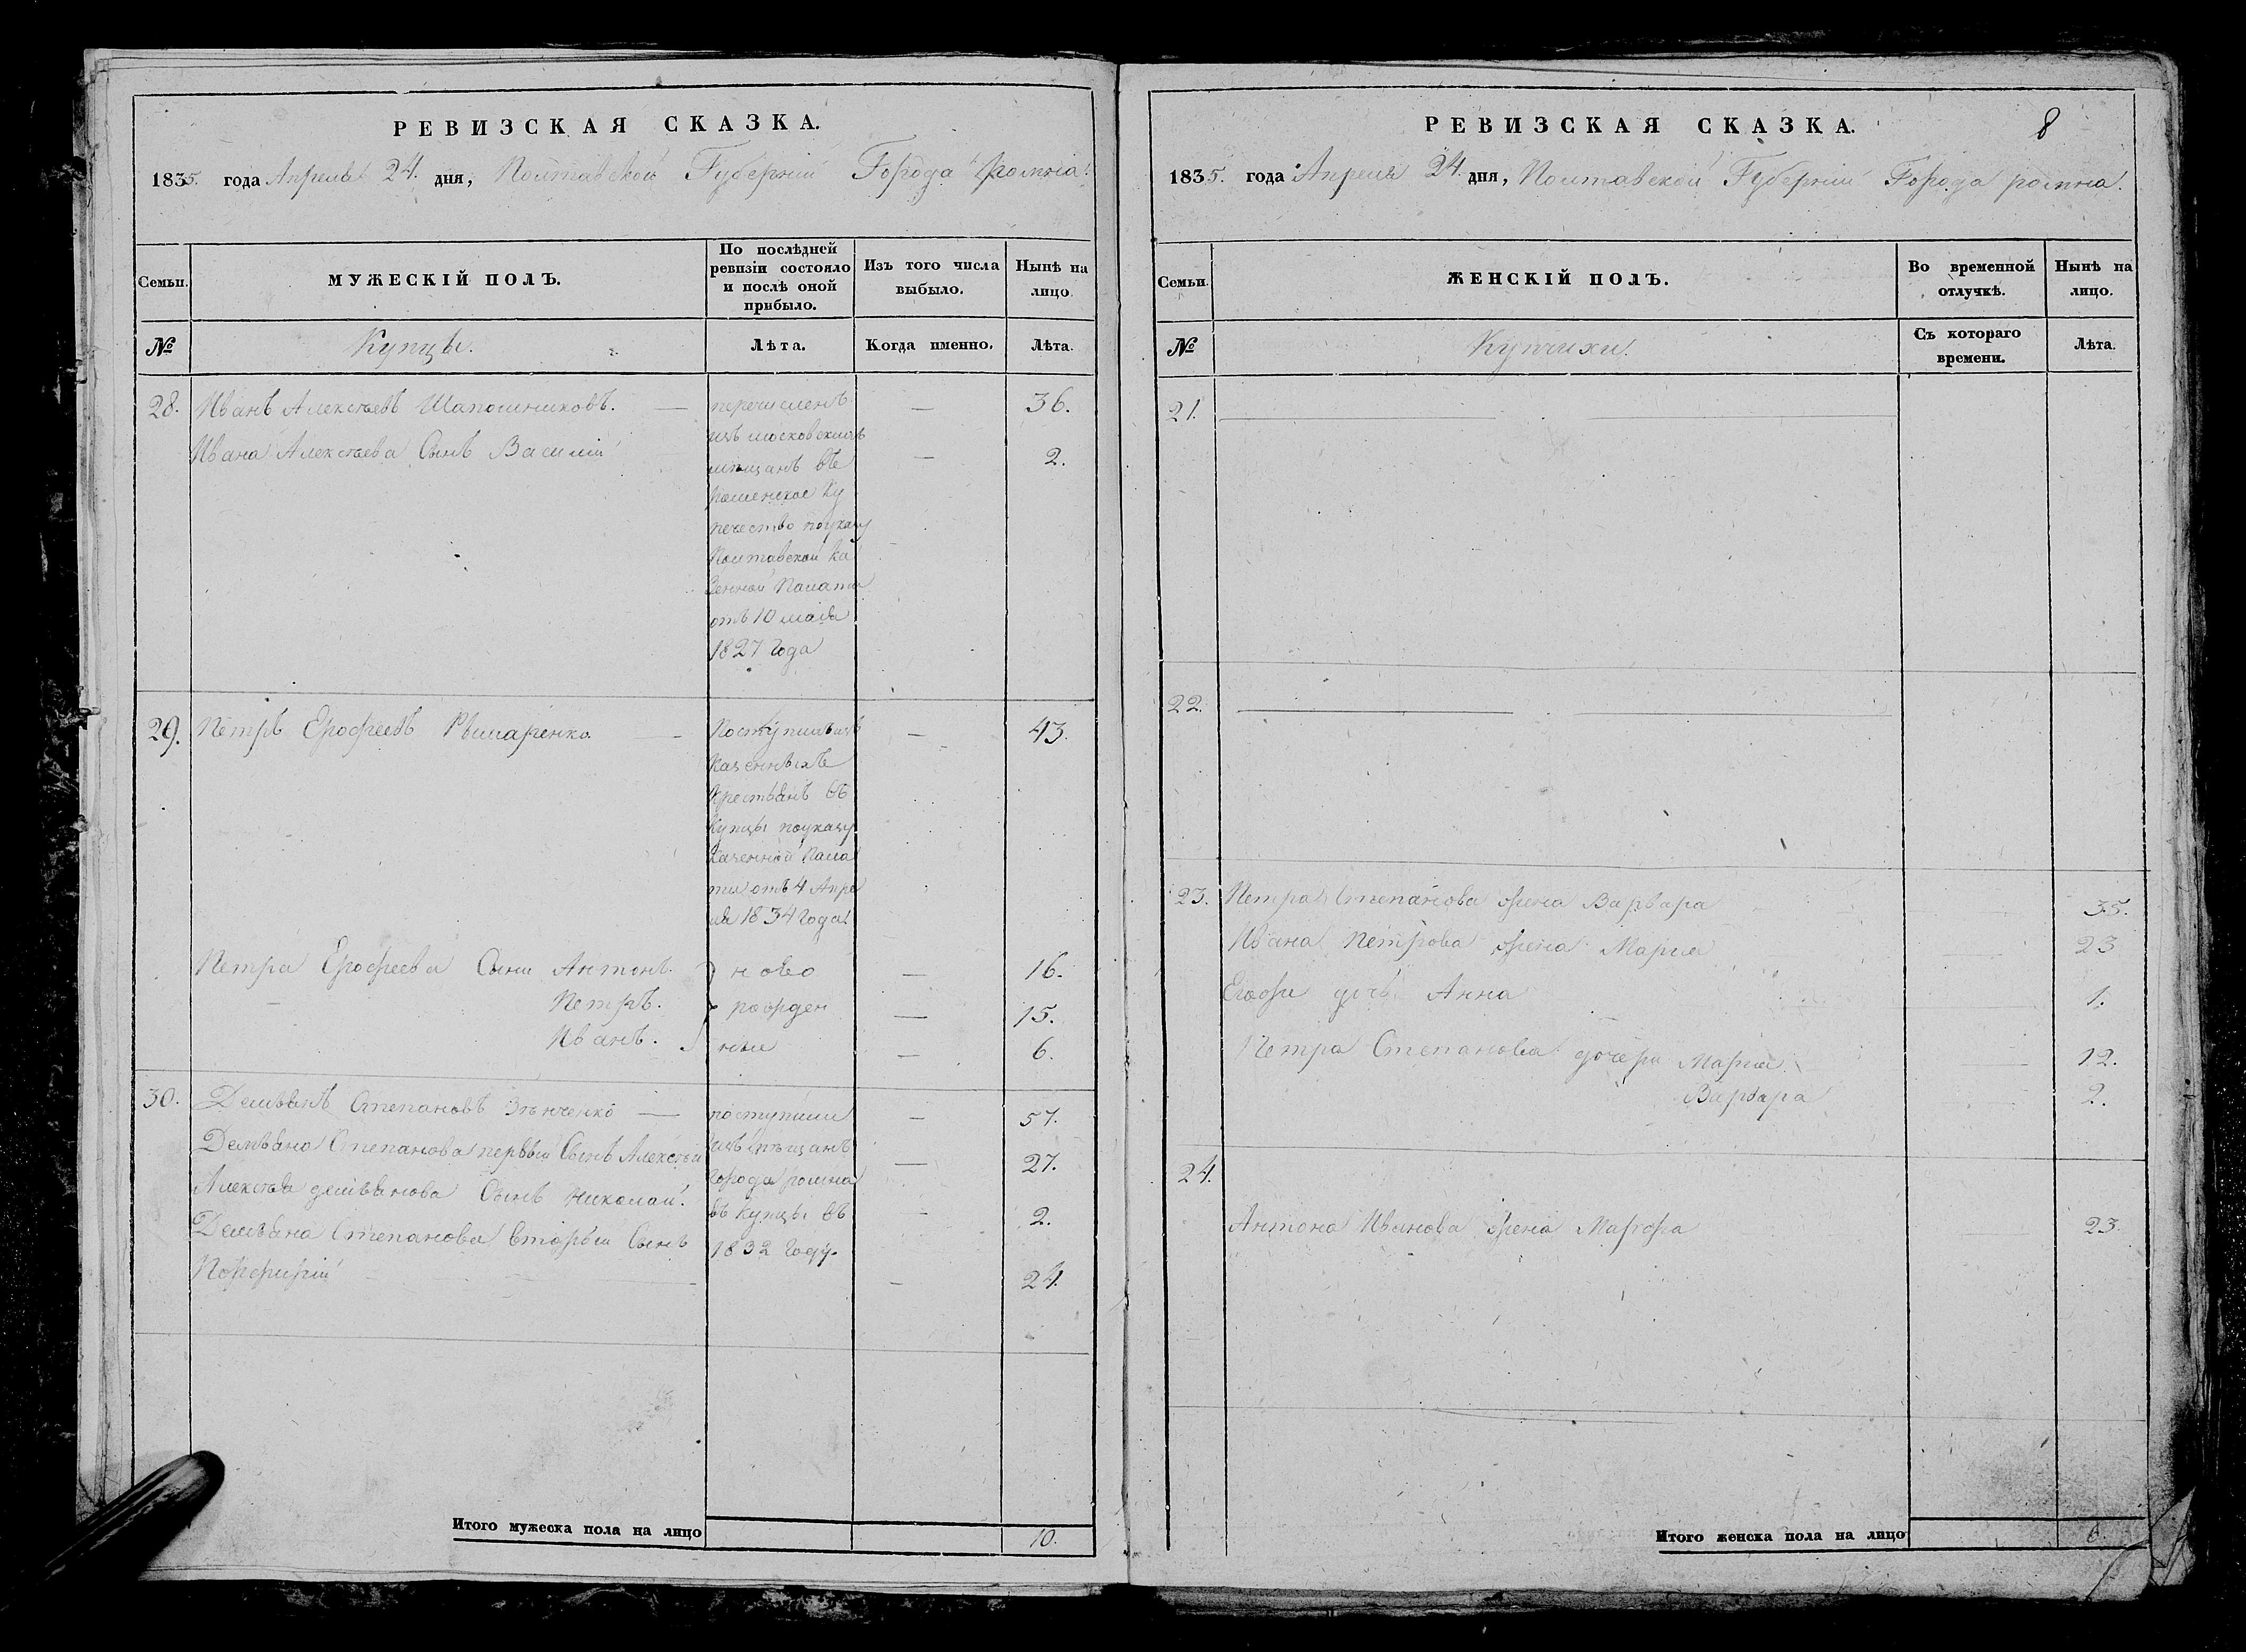 РЕВИЗСКАЯ СКАЗКА.
1835. года Апреля 24. дня, Полтавской Губерніи Города ромна.
Семьи.
МУЖЕСКІЙ ПОЛЪ.
По послѣдней ревизіи состояло и послѣ оной прибыло.
Изъ того числа выбыло.
Нынѣ на лицо
№
Купцы.
Лѣта.
Когда именно.
Лѣта.
28. Иванъ Алексѣевъ Шапошниковъ. — перечисленъ — 36.
изъ московскихъ
Ивана Алексѣева Сынъ Василій — 2.
мѣщанъ въ
роменское Ку
печество поуказу
Полтавской Ка
зенной Палаты
отъ 10 маія
1827 Года
29. Петръ Ерофеевъ Римаренко — Поступилъ изъ — 43.
Казенныхъ
Крестьянъ въ
Купцы поуказу
Казенной Пала
ты отъ 4 Апре
ля 1834 Года.
Петра Ерофеева Сыны Антонъ. ново — 16.
Петръ. рожден — 15.
Иванъ. ные — 6.
30. Демьянъ Степановъ Зѣнченко — поступили — 57.
Демьяна Степанова первый Сынъ Алексѣй изъ мѣщанъ — 27.
Алексѣя демьянова Сынъ Николай. города ромна
въ купцы въ — 2.
Демьяна Степанова вторый Сынъ 1832 Году.
Порфирій — 24.
Итого мужеска пола на лицо 10.
РЕВИЗСКАЯ СКАЗКА.
8
1835. года Апреля 24. дня, Полтавской Губерніи Города ромна.
Семьи.
ЖЕНСКІЙ ПОЛЪ.
Во временной отлучкѣ.
Нынѣ на лицо.
№
Купчихи.
Съ котораго времени.
Лѣта.
21.
22.
23. Петра Степанова жена Варвара 35.
Ивана Петрова жена Марія 23
Егоже дочь Анна 1.
Петра Степанова дочери Марія 12.
Варвара 2.
24.
Антона Иванова жена Марфа 23.
Итого женска пола на лицо 6.